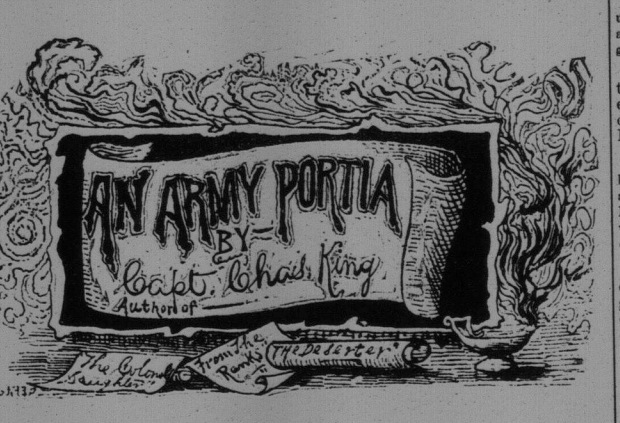 AN ARMY PORTIA
BY—
Capt. Chas. King
Author of
"The Colonel's
Daughter"
"From the
Ranks"
"The Deserter"